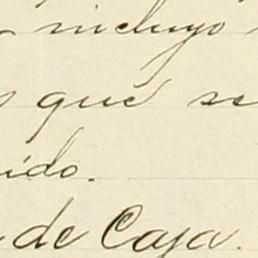 incluyo
que se
ido.
de Caja.